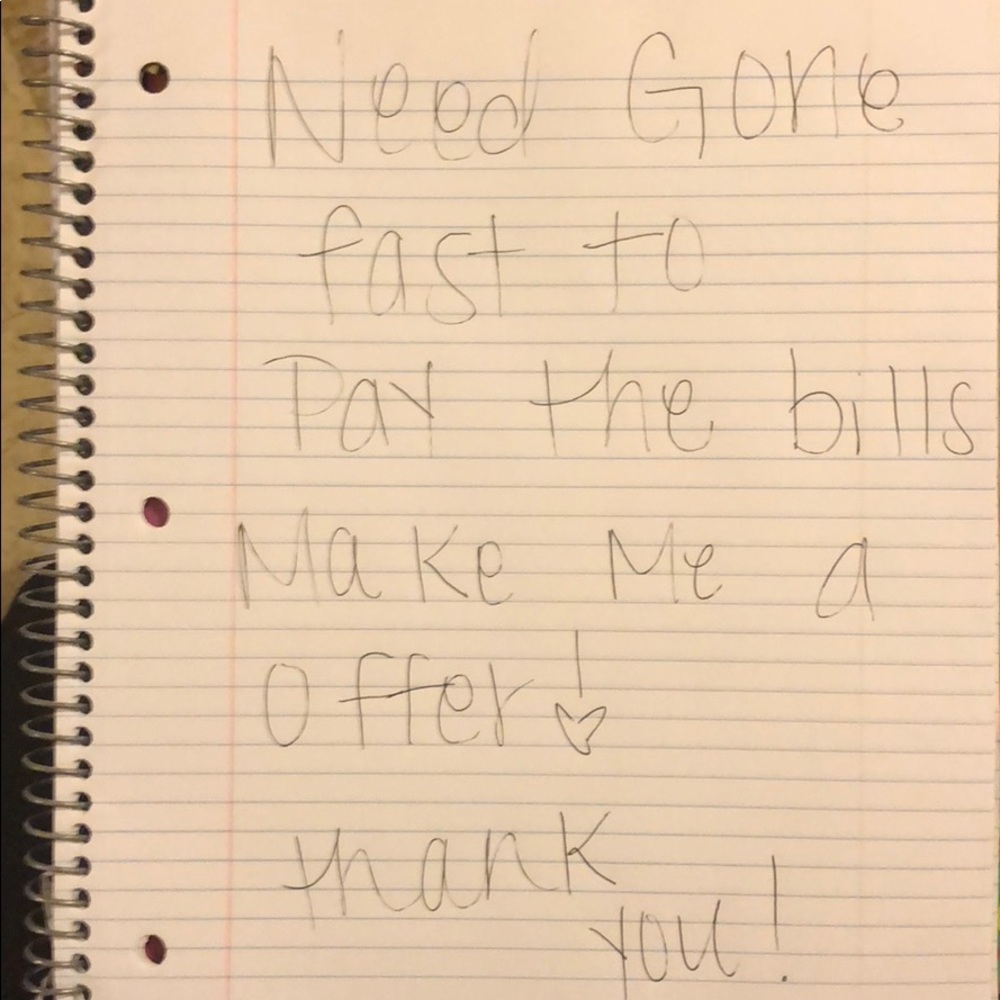 Need Gone
fast to
Pay the bills
Make Me a
offer!
thank
you!